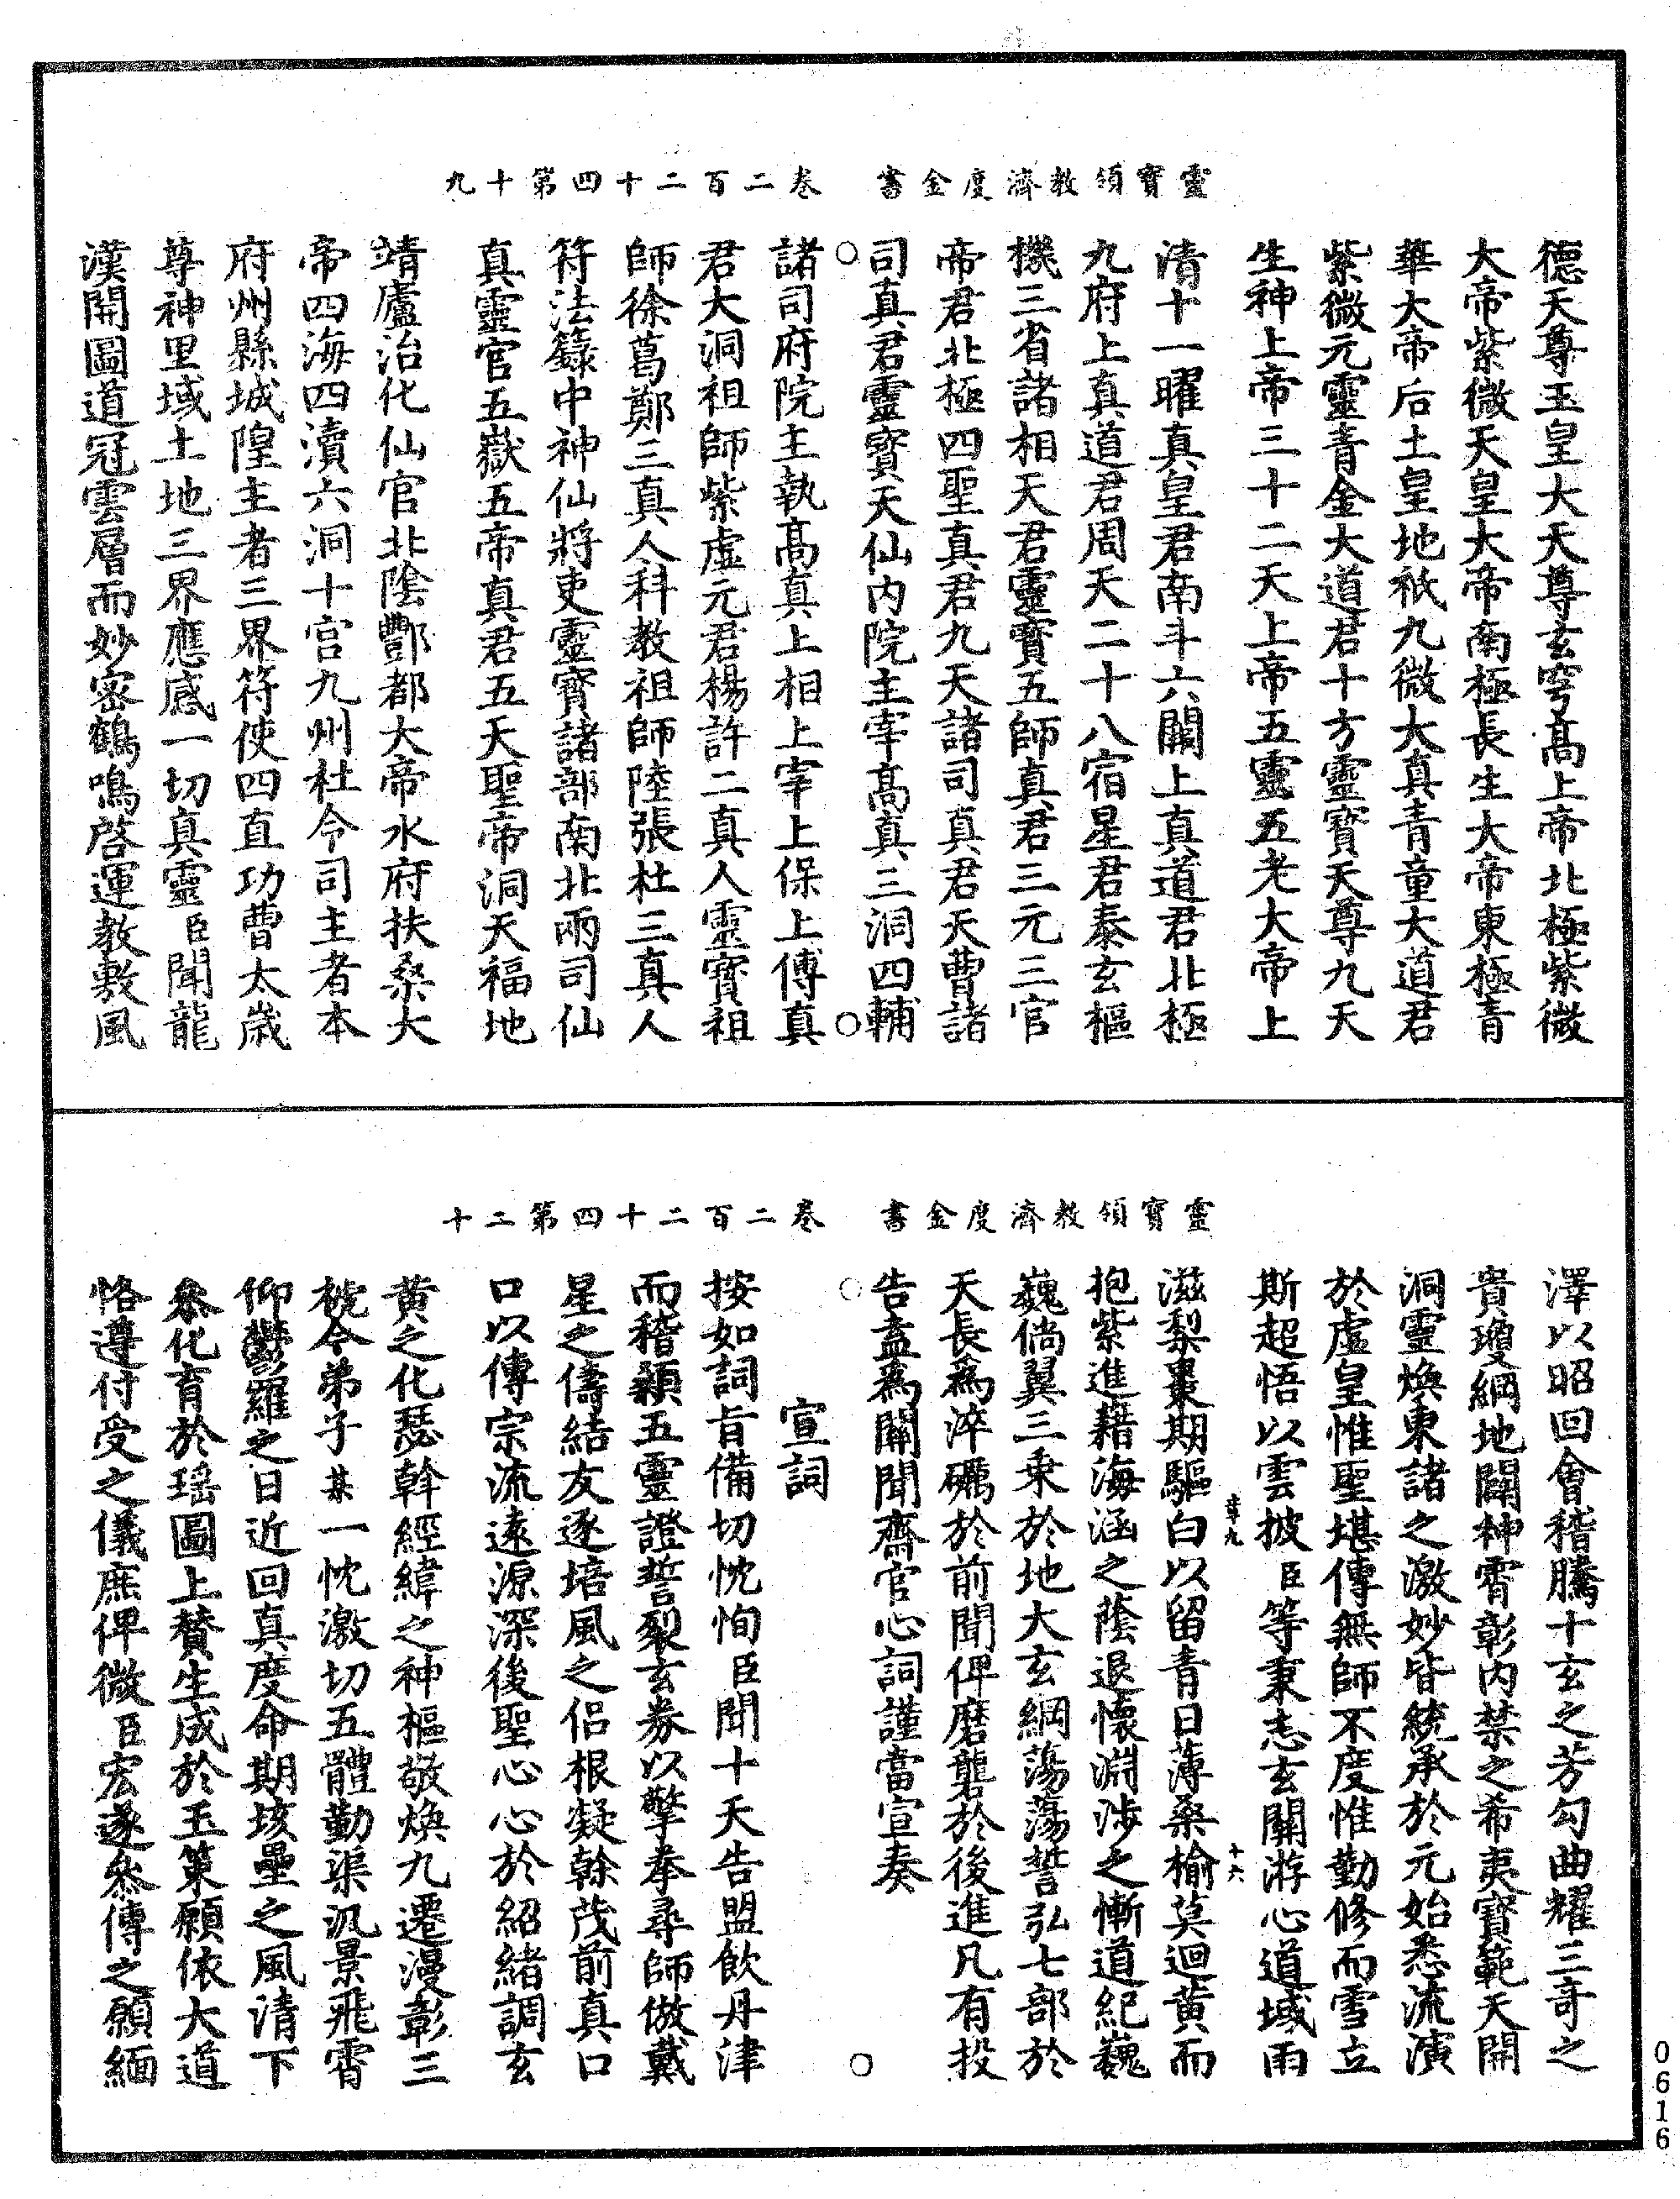 靈寶領教濟度金書　卷二百二十四第十九
德天尊玉皇大天尊玄穹高上帝北極紫微
大帝紫微天皇大帝南極長生大帝東極青
華大帝后土皇地祇九微太真青童大道君
紫微元靈青金大道君十方靈寶天尊九天
生神上帝三十二天上帝五靈五老大帝上
清十一曜真皇君南斗六閫上真道君北極
九府上真道君周天二十八宿星君泰玄樞
機三省諸相天君靈寶五師真君三元三官
帝君北極四聖真君九天諸司真君天曹諸
司真君靈寶天仙內院主宰高真三洞四輔
諸司府院主執高真上相上宰上保上傅真
君大洞祖師紫虛元君楊許二真人靈寶祖
師徐葛鄭三真人科教祖師陸張杜三真人
符法籙中神仙將吏靈寶諸部南北兩司仙
真靈官五嶽五帝真君五天聖帝洞天福地
靖廬治化仙官北陰酆都大帝水府扶桑大
帝四海四瀆六洞十宮九州社令司主者本
府州縣城隍主者三界符使四直功曹太歲
尊神里域土地三界應感一切真靈臣聞龍
漢開圖道冠雲層而妙密鶴鳴啓運教敷風
靈寶領教濟度金書　卷二百二十四第二十
澤以昭回會稽騰十玄之芳勾曲耀三奇之
貴瓊綱地闢神霄彰內禁之希夷寶範天開
洞靈煥東諸之激妙皆統承於元始悉流演
於虛皇惟聖堪傳無師不度惟勤修而雪立
斯超悟以雲披臣等秉志玄關游心道域雨
滋梨棗期驅白以留青日薄桑榆莫迴黃而
章九
十六
抱紫進藉海涵之蔭退懷淵涉之慚道紀巍
巍倘翼三乘於地大玄綱蕩蕩誓弘七部於
天長爲淬礪於前聞俾磨礱於後進凡有投
告盍爲關聞齋官心詞謹當宣奏
宣詞
按如詞旨備切忱恂臣聞十天告盟飲丹津
而稽顙五靈證誓裂玄券以擎拳尋師倣戴
星之儔結友逐培風之侶根凝榦茂前真口
口以傳宗流遠源深後聖心心於紹緒調玄
黃之化瑟斡經緯之神樞敬煥九遷漫彰三
㮣令弟子某一忱激切五體勤渠汎景飛霄
仰鬱羅之日近回真度命期垓壘之風清下
叅化育於瑤圖上贊生成於玉策願依大道
恪遵付受之儀庶俾微臣宏遂叅傳之願緬
0616